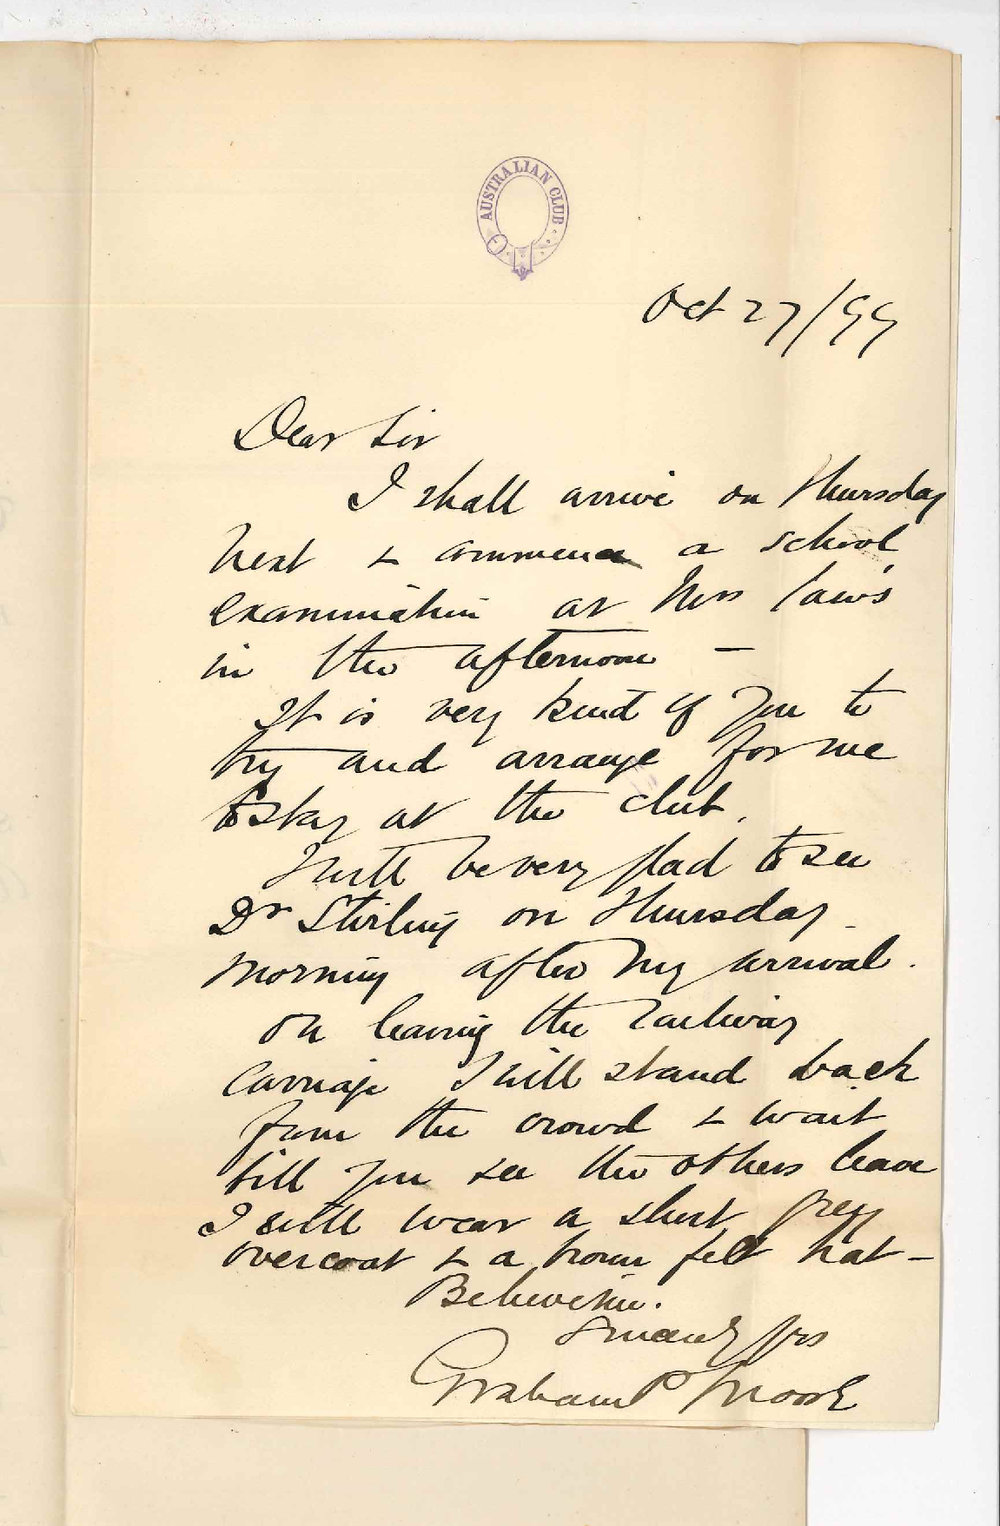 AUSTRALIAN CLUB
Oct 27/99
Dear Sir
I shall arrive on Thursday
next & commence a school
examination at Miss Laws
in the afternoon –
It is very kind of you to
try and arrange for me
to stay at the club.
I will be very glad to see
Dr Stirling on Thursday
morning after my arrival.
On leaving the railway
carriage I will stand back
from the crowd & wait
till you see the others leave
I will wear a short grey
overcoat & a brown felt hat –
Believe me.
Sincerely yrs
Graham P Moore